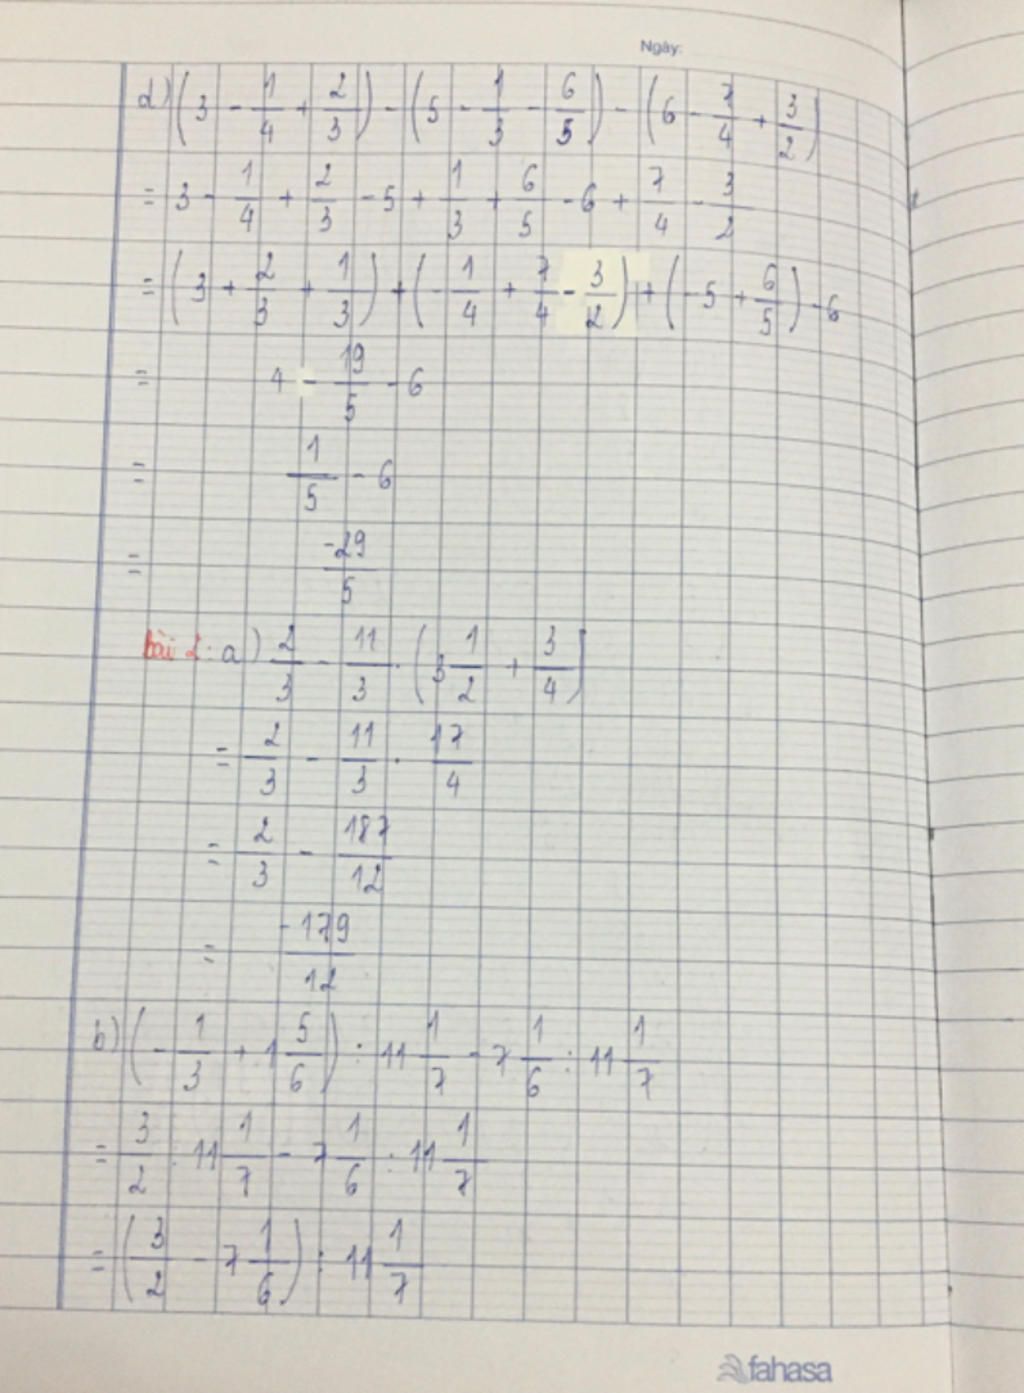 Ngày:
d) (3 - 1/4 + 2/3) - (5 - 1/3 - 6/5) - (6 - 7/4 + 3/2)
= 3 - 1/4 + 2/3 - 5 + 1/3 + 6/5 - 6 + 7/4 - 3/2
= (3 + 2/3 + 1/3) + (- 1/4 + 7/4 - 3/2) + (-5 + 6/5) - 6
= 4 - 19/5 - 6
= 1/5 - 6
= -29/5
bài 2: a) 2/3 - 11/3 . (3 1/2 + 3/4)
= 2/3 - 11/3 . 17/4
= 2/3 - 187/12
= -179/12
b) (- 1/3 + 1 5/6) : 11 1/7 - 7 1/6 : 11 1/7
= 3/2 : 11 1/7 - 7 1/6 : 11 1/7
= (3/2 - 7 1/6) : 11 1/7
fahasa